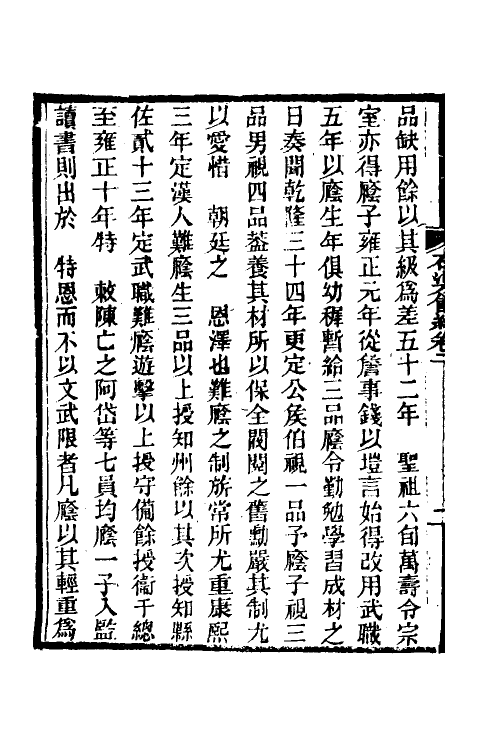 品缺用餘以其級爲差五十二年　聖祖六旬萬壽令宗
室亦得廕子雍正元年從詹事錢以塏言始得改用武職
五年以廕生年俱幼穉暫給三品廕令勤勉學習成材之
日奏聞乾隆三十四年更定公矦伯視一品予廕子視三
品男視四品葢養其材所以保全閥閱之舊勳嚴其制尤
以愛惜　朝廷之　恩澤也難廕之制旌常所尤重康熙
三年定漢人難廕生三品以上授知州餘以其次授知縣
佐貳十三年定武職難廕遊擊以上授守備餘授衞千總
至雍正十年特　敕陳亡之阿岱等七員均廕一子入監
讀書則出於　特恩而不以文武限者凡廕以其輕重爲